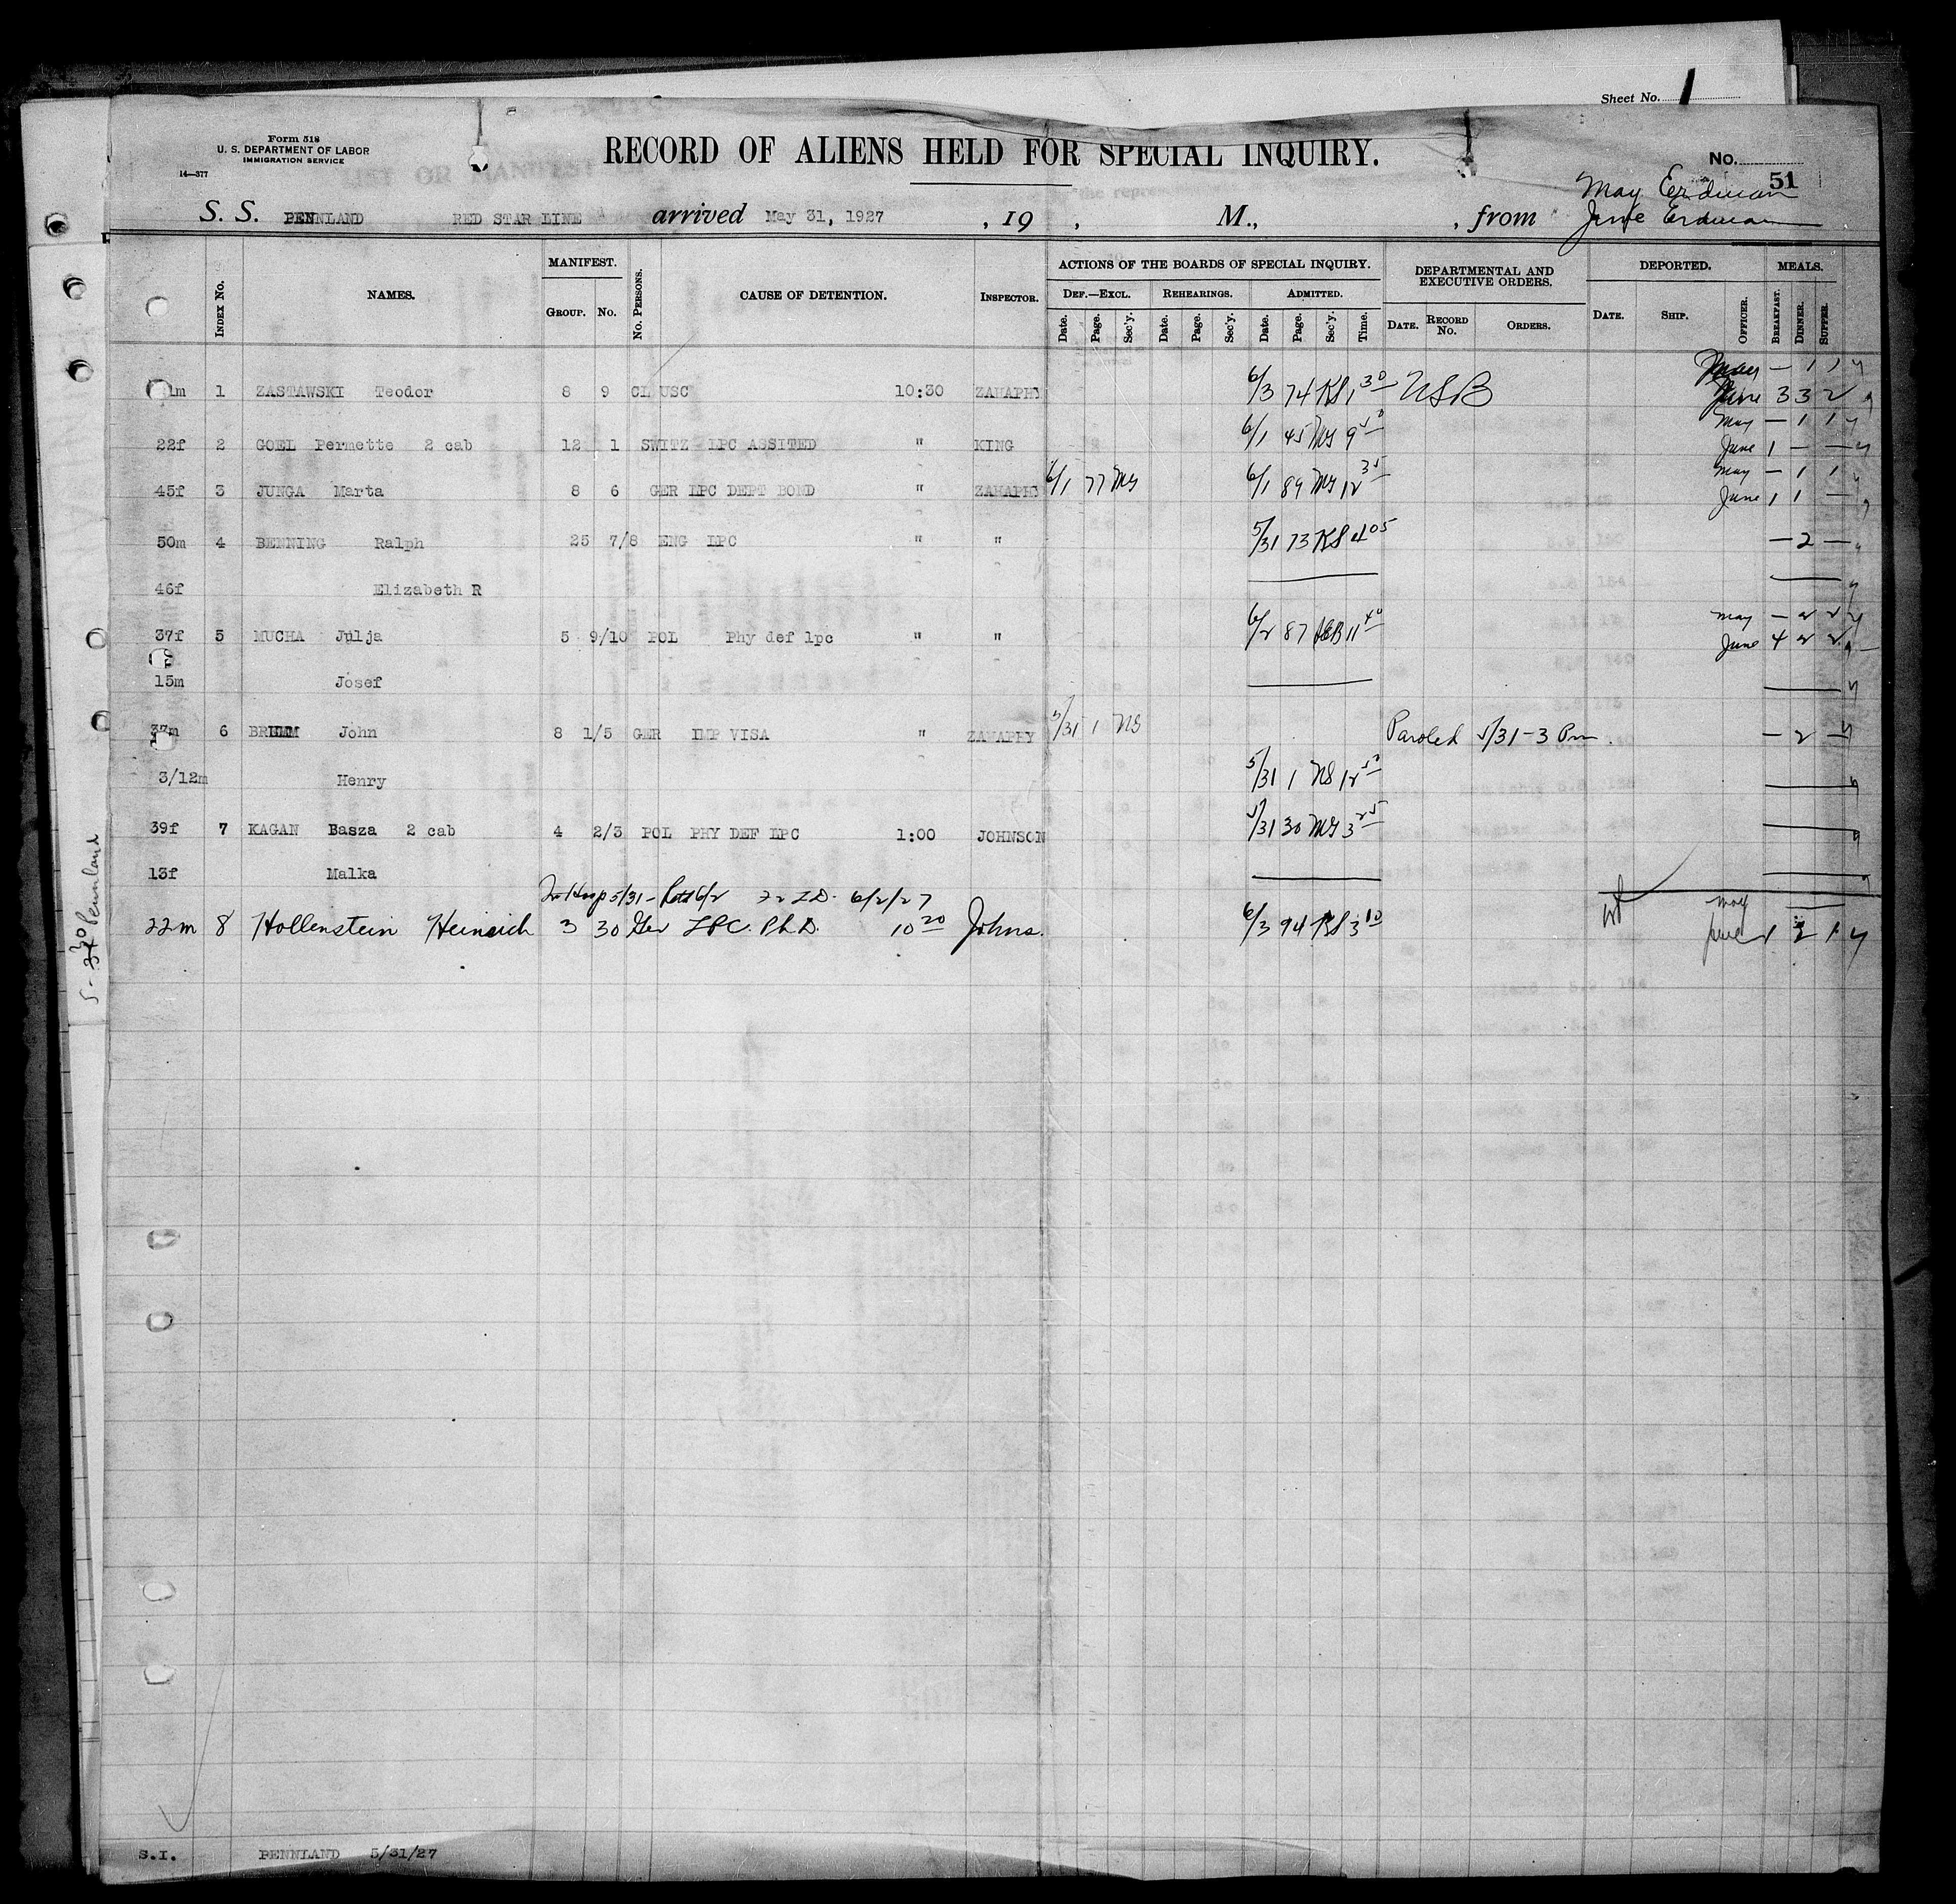 Sheet No. 1
Form 518
U. S. DEPARTMENT OF LABOR
IMMIGRATION SERVICE
14—377
RECORD OF ALIENS HELD FOR SPECIAL INQUIRY.
No. 51
May Erdman
June Erdman
S. S. PENNLAND RED STAR LINE arrived May 31, 1927 , 19 , M., , from
INDEX No. NAMES. MANIFEST. GROUP. No. No. PERSONS. CAUSE OF DETENTION. INSPECTOR.
ACTIONS OF THE BOARDS OF SPECIAL INQUIRY. DEPARTMENTAL AND EXECUTIVE ORDERS. DEPORTED. MEALS.
DEF.—EXCL. REHEARINGS. ADMITTED.
Date. Page. Sec'y. Date. Page. Sec'y. Date. Page. Sec'y. Time. DATE. RECORD No. ORDERS. DATE. SHIP. OFFICER. BREAKFAST. DINNER. SUPPER.
1m 1 ZASTAWSKI Teodor 8 9 CL USC 10:30 ZAHAPHY 6/3 74 KS 1 30 USB May — 1 1
June 3 3 2
22f 2 GOEL Permette 2 cab 12 1 SWITZ LPC ASSITED " KING 6/1 45 MG 9 May — 1 1
June 1 — —
45f 3 JUNGA Marta 8 6 GER LPC DEPT BOND " ZAHAPHY 6/1 77 MG 6/1 89 MG 12 35 May — 1 1
June 1 1 —
50m 4 BENNING Ralph 25 7/8 ENG LPC " " 5/31 73 KS 4 05 — 2 —
46f Elizabeth R
37f 5 MUCHA Julja 5 9/10 POL Phy def lpc " " 6/2 87 11 40 May — 2 2
June 4 2 2
15m Josef
37m 6 John 8 1/5 GER IMP VISA " ZAHAPHY 5/31 1 NS Paroled 5/31 - 3 Pm. — 2 —
3/12m Henry 5/31 1 NS 12
39f 7 KAGAN Basza 2 cab 4 2/3 POL PHY DEF LPC 1:00 JOHNSON 5/31 30 MG 3 25
13f Malka
Hosp 5/31 - 6/2 6/2/27
22m 8 Hollenstein Heinrich 3 30 Ger LPC. Ph.D. 10 20 Johns. 6/3 94 KS 3 10 May
June 1 2 1
5-30 Pennland
S.I. PENNLAND 5/31/27